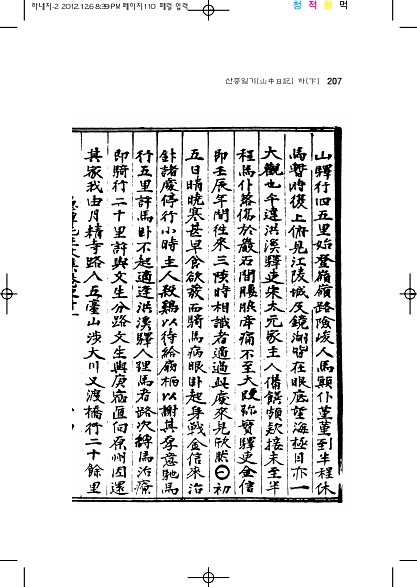 하내지-2 2012.12.6 8:39 PM 페이지110 페럼 입력
청 적 황 먹
산중일기(山中日記) 하(下) 207
山驛行四五里始登嶺嶺路險峻人馬顚仆董董到半程休
馬暫時後上俯見江陵城及鏡湖皆在眼底望海極目亦一
大觀也午達洪溪驛吏朱太元家主人備饌頻款接未至半
程馬仆路傷於巖石間腰脹牽痛不至大段弥賢驛吏金信
即壬辰年間往來三陟時相識者適過此處來見欣然○初
五日晴曉寒甚早食欲發而騎馬病眼卧起身戰金信來治
針諸處停行小時主人殺鷄以待給扇柄以謝其厚意馳馬
行五里許馬卧不起適逢洪溪驛人理馬者路次縛馬治療
即騎行二十里許與文生分路文生與庚窓匡向原州因還
其家我由月精寺路入五臺山涉大川又渡橋行二十餘里